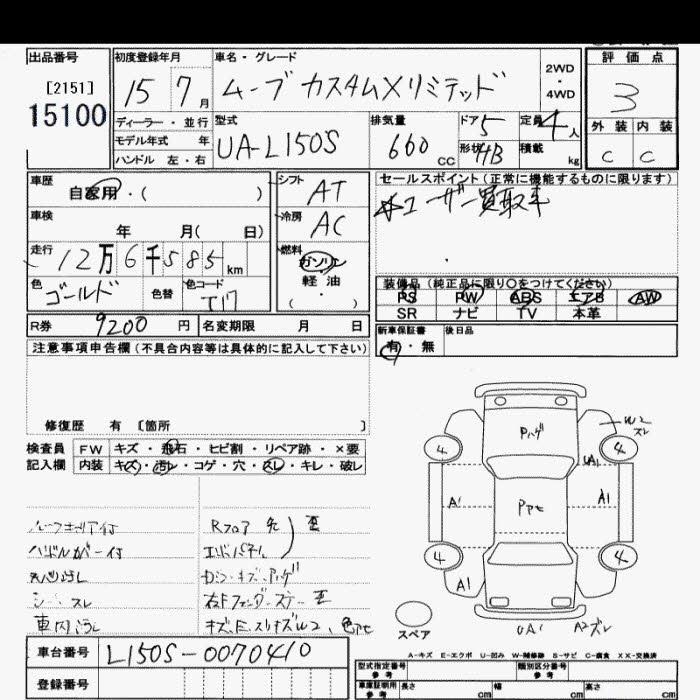 出品番号
[2151]
15100
初度登録年月
15 7月
車名・グレード
ムーブ カスタムXリミテッド
2WD・4WD
評価点
3
外装 内装
C C
ディーラー・並行
モデル年式 年
ハンドル 左・右
型式
UA-L150S
排気量
660 CC
ドア 5
形状 HB
定員 4人
積載 kg
車歴
自家用・( )
車検
年 月( 日)
走行
12万6千585km
色
ゴールド
色替
色コード
T17
シフト
AT
冷房
AC
燃料
ガソリン
軽油
( )
セールスポイント(正常に機能するものに限ります)
ユーザー買取車
装備品(純正品に限り○をつけてください)
PS PW ABS エアB AW
SR ナビ TV 本革
新車保証書
有・無
後日品
R券 9200円
名変期限 月 日
注意事項申告欄(不具合内容等は具体的に記入して下さい)
修復歴 有 〔箇所 〕
検査員記入欄
FW キズ・飛石・ヒビ割・リペア跡・×要
内装 キズ・汚レ・コゲ・穴・スレ・キレ・破レ
ハンドルカバー付
シートスレ
車内汚レ
Rフロア 先
エンドパネル
歪
Pハゲ
W2
スレ
4
4
UA1
A1
Pアセ
A1
4
4
A1
UA1
A2スレ
スペア
A-キズ E-エクボ U-凹み W-補修跡 S-サビ C-腐食 XX-交換済
車台番号
L150S-0070410
登録番号
型式指定番号
参考
類別区分番号
参考
車庫証明用
参考
長さ cm
幅 cm
高さ cm